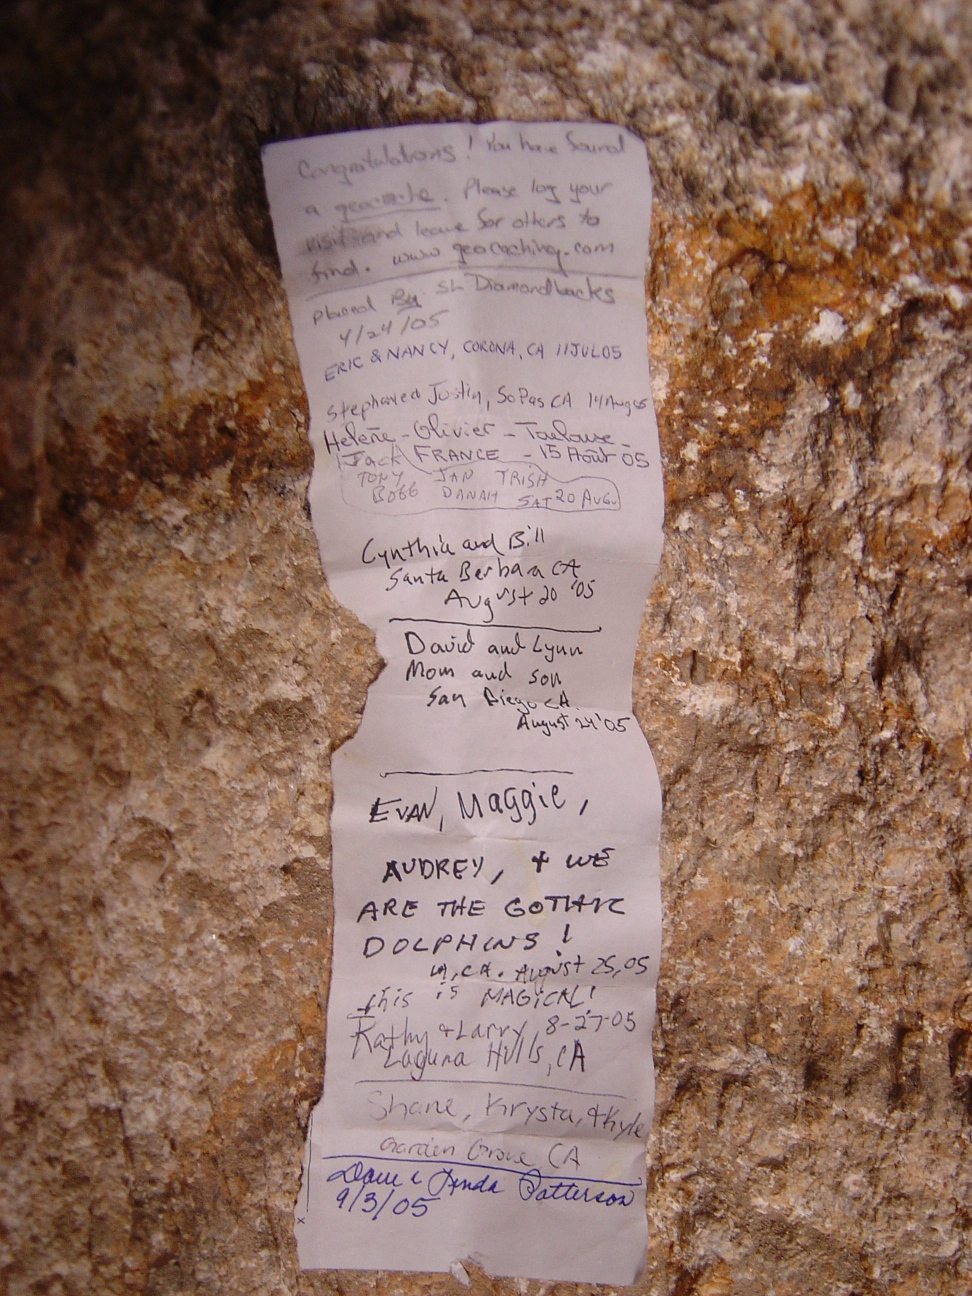 Congratulations! You have found
a geocache. Please log your
visit and leave for others to
find. www.geocaching.com
placed By: SL Diamondbacks
4/24/05
ERIC & NANCY, CORONA, CA 11JUL05
Justin, SoPas CA 14Aug05
Helene - Olivier - Toulouse -
Jack FRANCE - 15 Août 05
TONY JAN TRISH
BOBB DANAH SAT 20 AUG.
Cynthia and Bill
Santa Barbara CA
August 20 '05
David and Lynn
Mom and son
San Diego CA.
August 24 '05
EVAN, Maggie,
AUDREY, + WE
ARE THE GOTHIC
DOLPHINS!
LA, CA. August 25, 05
this is MAGICAL!
Kathy & Larry, 8-27-05
Laguna Hills, CA
Shane, Krysta, & Kyle
Garden Grove CA
Dave & Linda Patterson
9/3/05
x